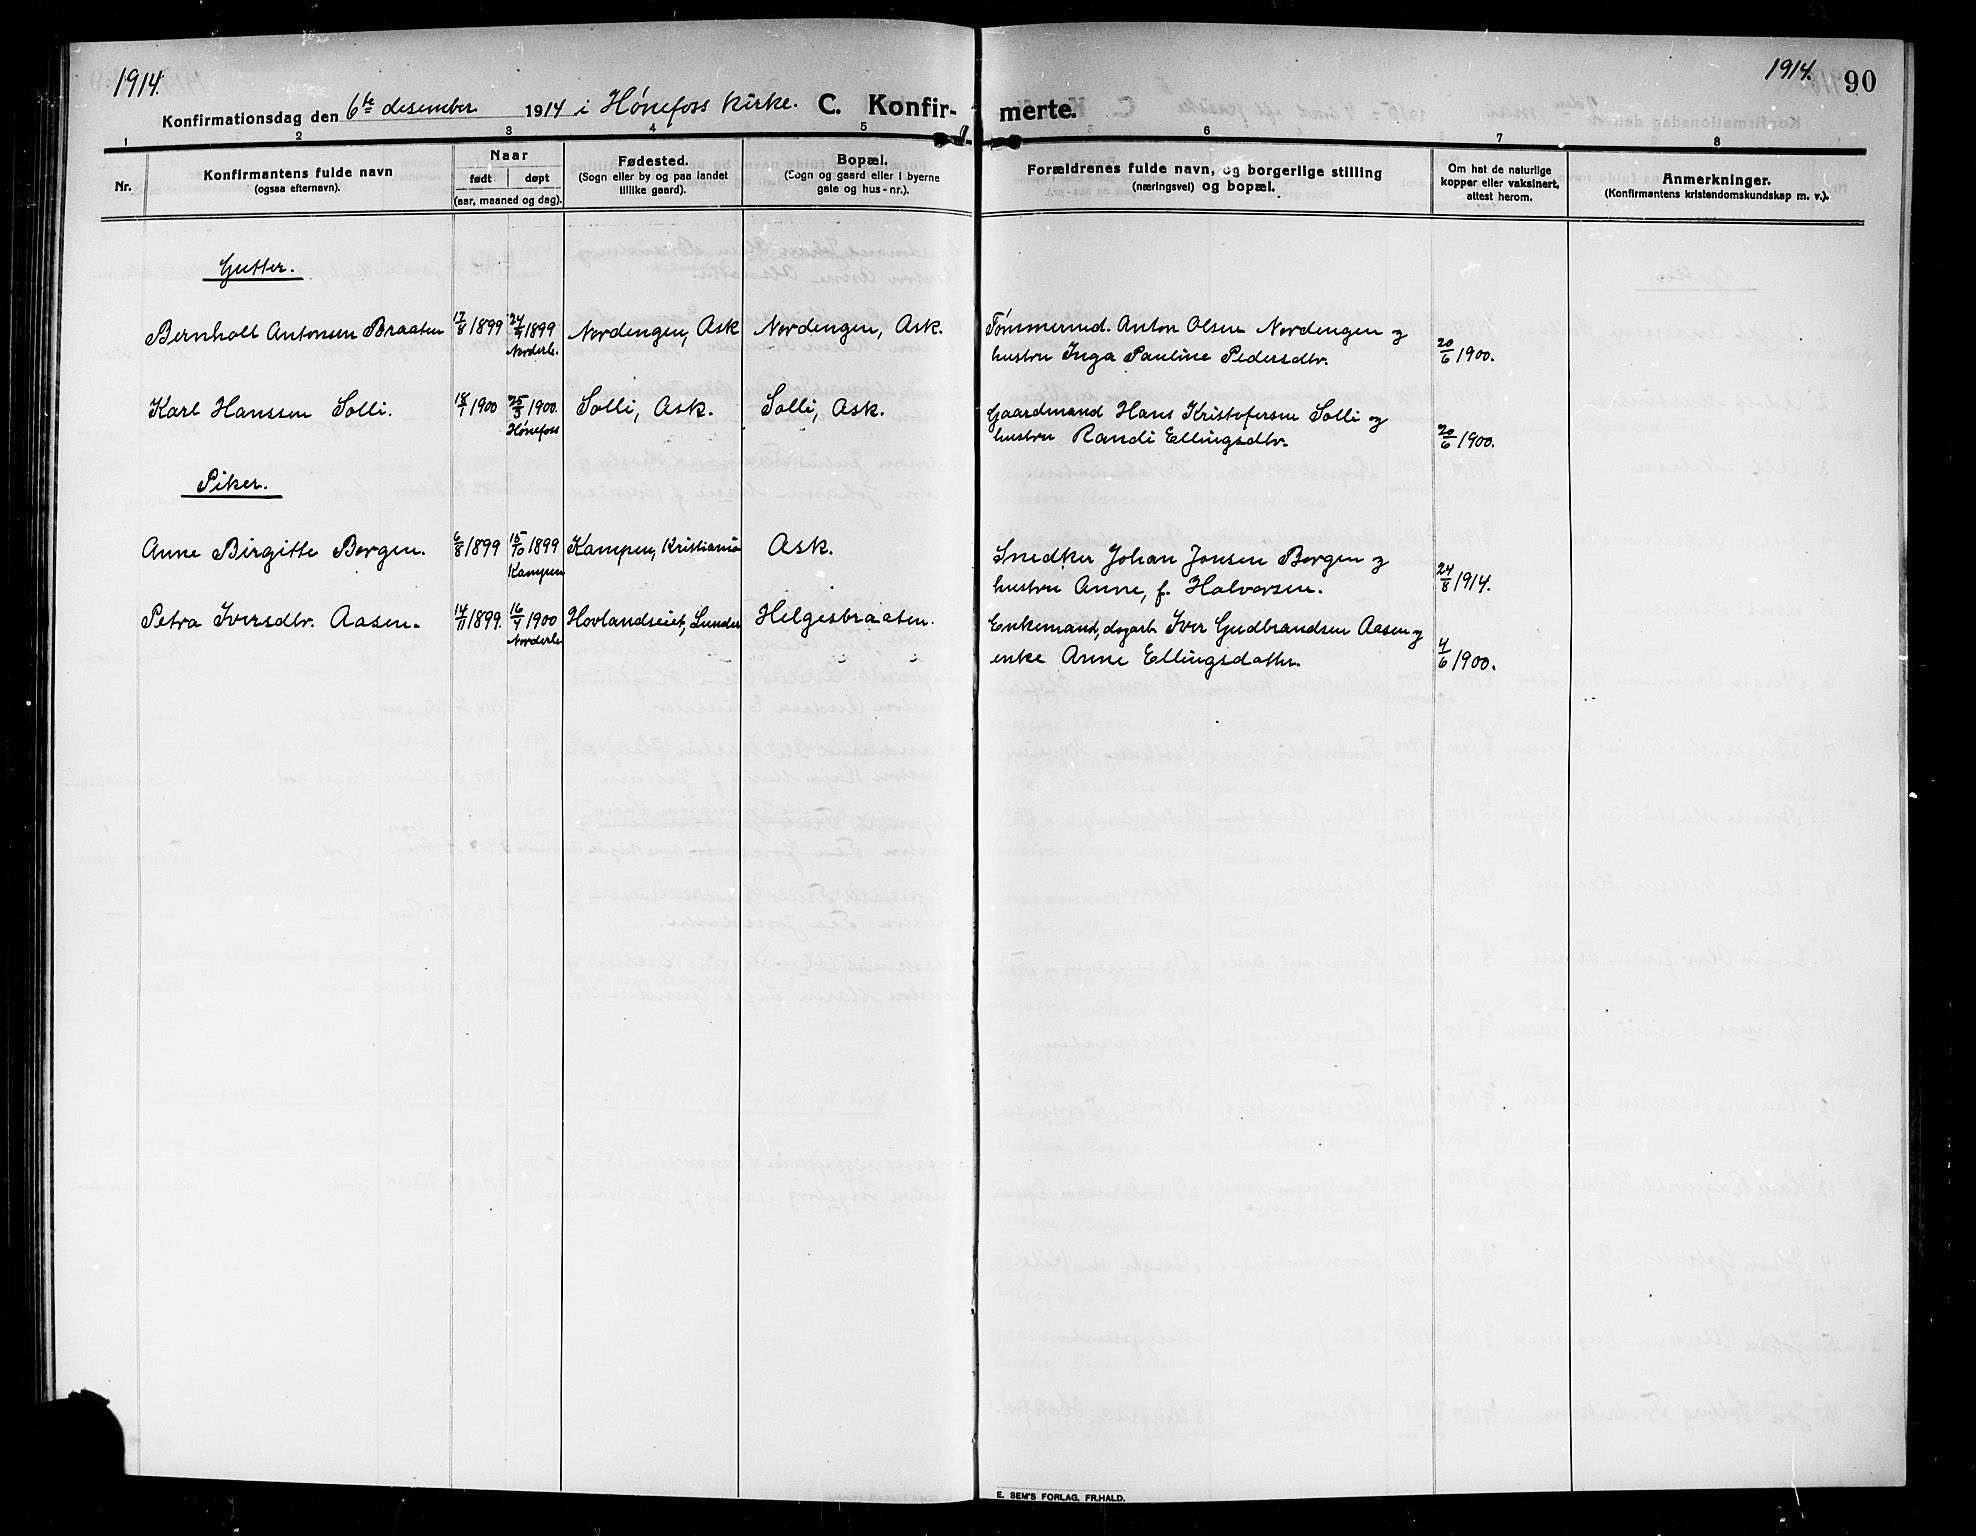 1914.
1914.
90
Konfirmationsdag den 6te desember 1914 i Hønefoss kirke. C. Konfir-merte.
1 2 3 4 5 6 7 8
Nr.
Konfirmantens fulde navn
(ogsaa efternavn).
Naar
født døpt
(aar, maaned og dag).
Fødested.
(Sogn eller by og paa landet
tillike gaard).
Bopæl.
(Sogn og gaard eller i byerne
gate og hus-nr.).
Forældrenes fulde navn, og borgerlige stilling
(næringsvei) og bopæl.
Om hat de naturlige
kopper eller vaksinert,
attest herom.
Anmerkninger.
(Konfirmantens kristendomskundskap m. v.).
Gutter.
Bernholt Antonsen Braaten 17/8 1899 24/9 1899 Nordengen, Ask Nordengen, Ask. Tømmermd. Anton Olsen Nordengen og
Norderh. hustru Inga Pauline Pedersdtr. 20/6 1900.
Karl Hanssen Solli. 18/1 1900 25/3 1900. Solli, Ask. Solli, Ask. Gaardmand Hans Kristofersen Solli og
Hønefoss hustru Randi Ellingsdtr. 20/6 1900.
Piker.
Anne Birgitte Borgen. 6/8 1899 15/10 1899 Kampen, Kristiania Ask. Snedker Johan Jonsen Borgen og
Kampen hustru Anne, f. Halvorsen. 24/8 1914.
Petra Iversdtr. Aasen. 14/11 1899. 16/4 1900 Hovlandseiet, Lunder Helgesbraaten. Enkemand, dagarb. Iver Gudbrandsen Aasen og
Norderh. enke Anne Ellingsdatter. 4/6 1900.
E. SEM'S FORLAG, FR.HALD.